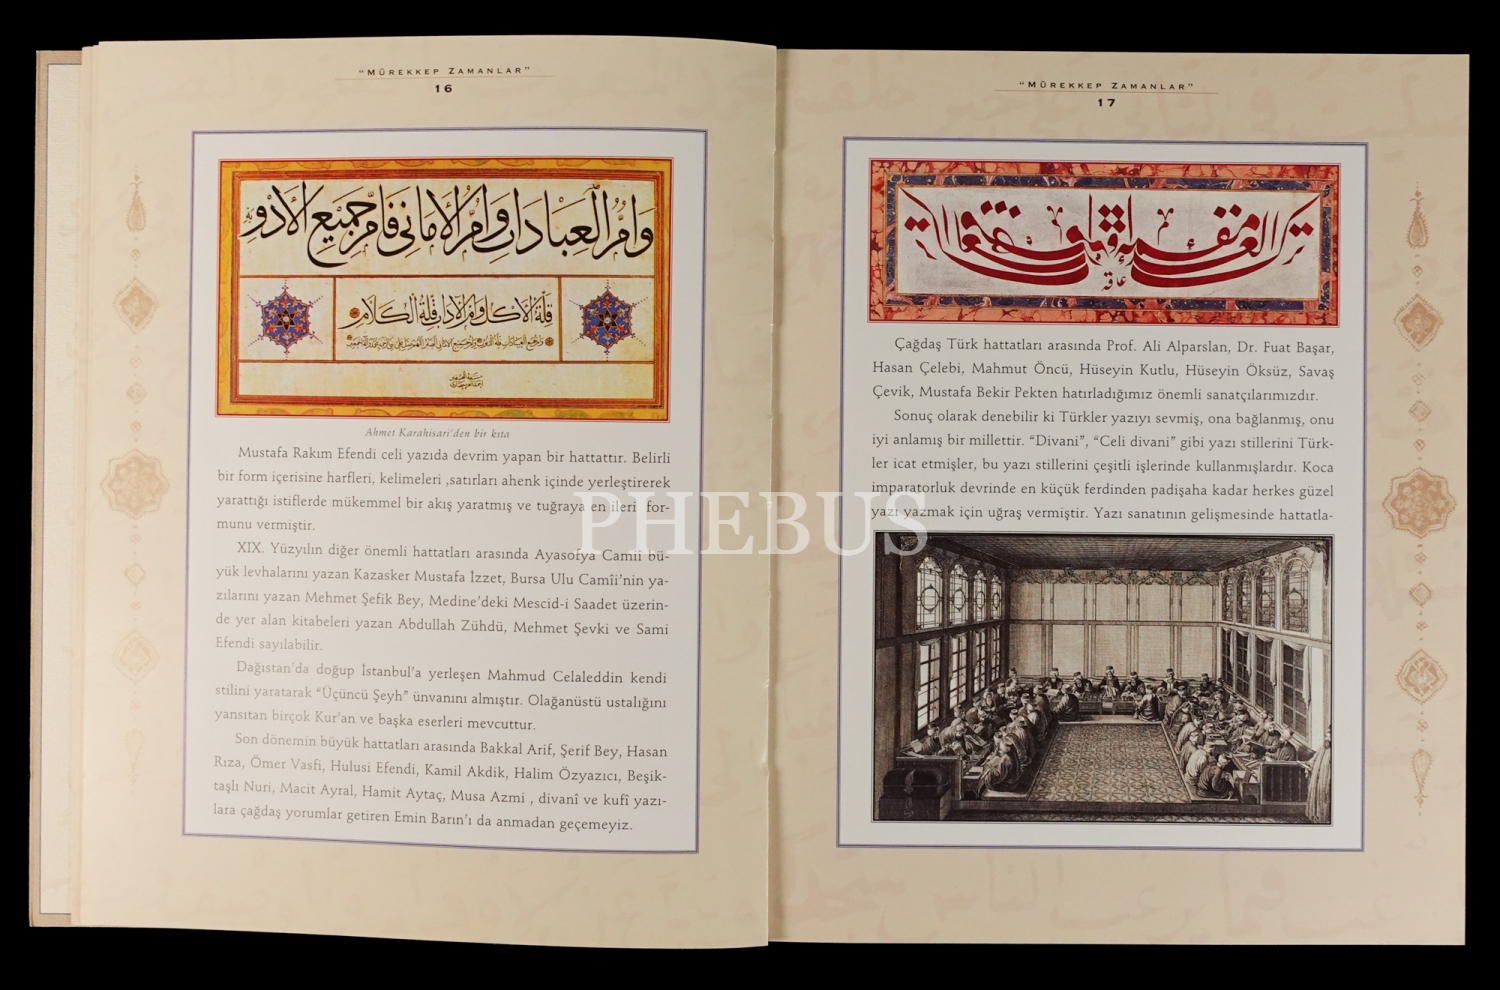 "MÜREKKEP ZAMANLAR"
16
وَأمُّ العِبَادَاتِ وَأمُّ الأمَانِي فَأمُّ جَمِيعِ الأدْوِيَةِ
قلة الأكل وأم الآداب قلة الكلام
Ahmet Karahisari'den bir kıta
Mustafa Rakım Efendi celi yazıda devrim yapan bir hattattır. Belirli
bir form içerisine harfleri, kelimeleri ,satırları ahenk içinde yerleştirerek
yarattığı istiflerde mükemmel bir akış yaratmış ve tuğraya en ileri for-
munu vermiştir.
XIX. Yüzyılın diğer önemli hattatları arasında Ayasofya Camii bü-
yük levhalarını yazan Kazasker Mustafa İzzet, Bursa Ulu Camîi'nin ya-
zılarını yazan Mehmet Şefik Bey, Medine'deki Mescid-i Saadet üzerin-
de yer alan kitabeleri yazan Abdullah Zühdü, Mehmet Şevki ve Sami
Efendi sayılabilir.
Dağıstan'da doğup İstanbul'a yerleşen Mahmud Celaleddin kendi
stilini yaratarak "Üçüncü Şeyh" ünvanını almıştır. Olağanüstü ustalığını
yansıtan birçok Kur'an ve başka eserleri mevcuttur.
Son dönemin büyük hattatları arasında Bakkal Arif, Şerif Bey, Hasan
Rıza, Ömer Vasfi, Hulusi Efendi, Kamil Akdik, Halim Özyazıcı, Beşik-
taşlı Nuri, Macit Ayral, Hamit Aytaç, Musa Azmi , divanî ve kufî yazı-
lara çağdaş yorumlar getiren Emin Barın'ı da anmadan geçemeyiz.
"MÜREKKEP ZAMANLAR"
17
Çağdaş Türk hattatları arasında Prof. Ali Alparslan, Dr. Fuat Başar,
Hasan Çelebi, Mahmut Öncü, Hüseyin Kutlu, Hüseyin Öksüz, Savaş
Çevik, Mustafa Bekir Pekten hatırladığımız önemli sanatçılarımızdır.
Sonuç olarak denebilir ki Türkler yazıyı sevmiş, ona bağlanmış, onu
iyi anlamış bir millettir. "Divani", "Celi divani" gibi yazı stillerini Türk-
ler icat etmişler, bu yazı stillerini çeşitli işlerinde kullanmışlardır. Koca
imparatorluk devrinde en küçük ferdinden padişaha kadar herkes güzel
yazı yazmak için uğraş vermiştir. Yazı sanatının gelişmesinde hattatla-
PHEBUS